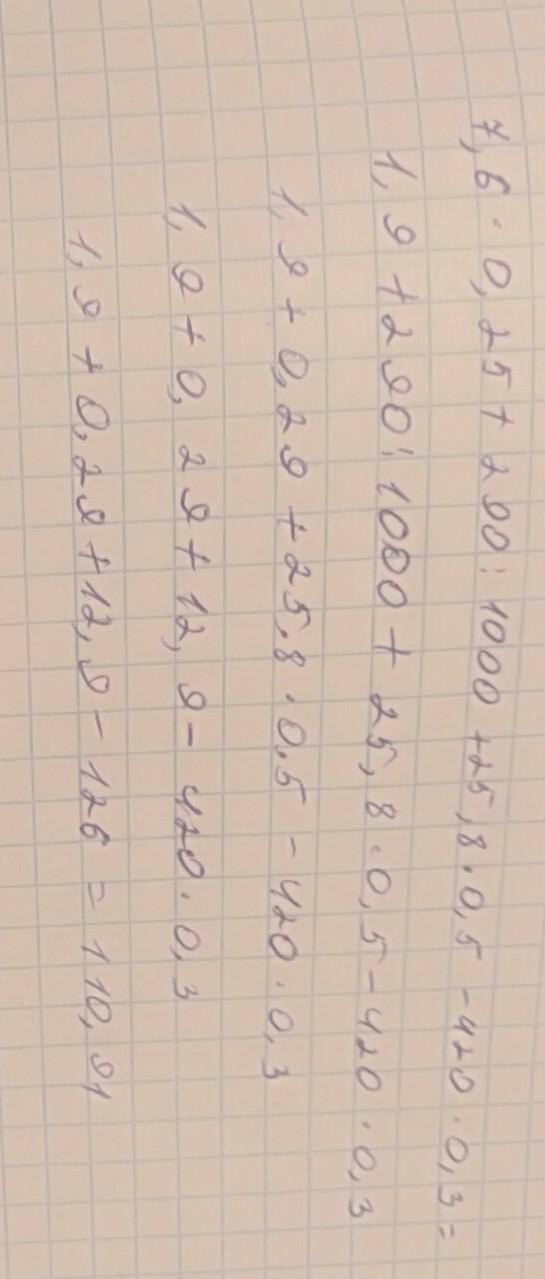 7,6 · 0,25 + 290 : 1000 + 25,8 · 0,5 - 420 · 0,3 =
1,9 + 290 : 1000 + 25,8 · 0,5 - 420 · 0,3
1,9 + 0,29 + 25,8 · 0,5 - 420 · 0,3
1,9 + 0,29 + 12,9 - 420 · 0,3
1,9 + 0,29 + 12,9 - 126 = 110,91